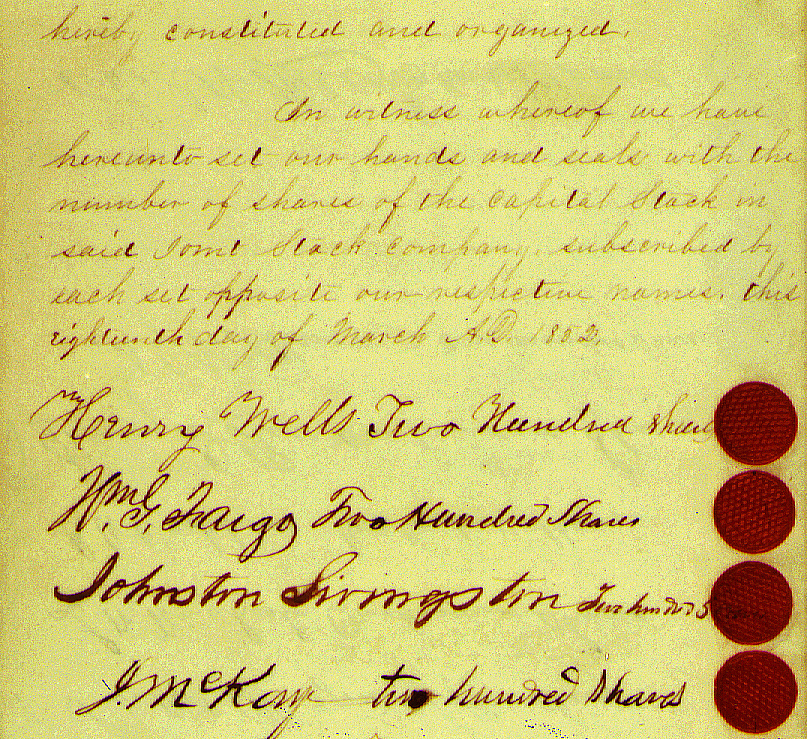 hereby constituted and organized.
In witness whereof we have
hereunto set our hands and seals with the
number of shares of the Capital Stock in
said Joint Stock Company, subscribed by
each set opposite our respective names, this
eighteenth day of March A.D. 1852.
Henry Wells Two Hundred Shares
Wm. G. Fargo Two Hundred Shares
Johnston Livingston Two hundred
J. McKay two hundred Shares